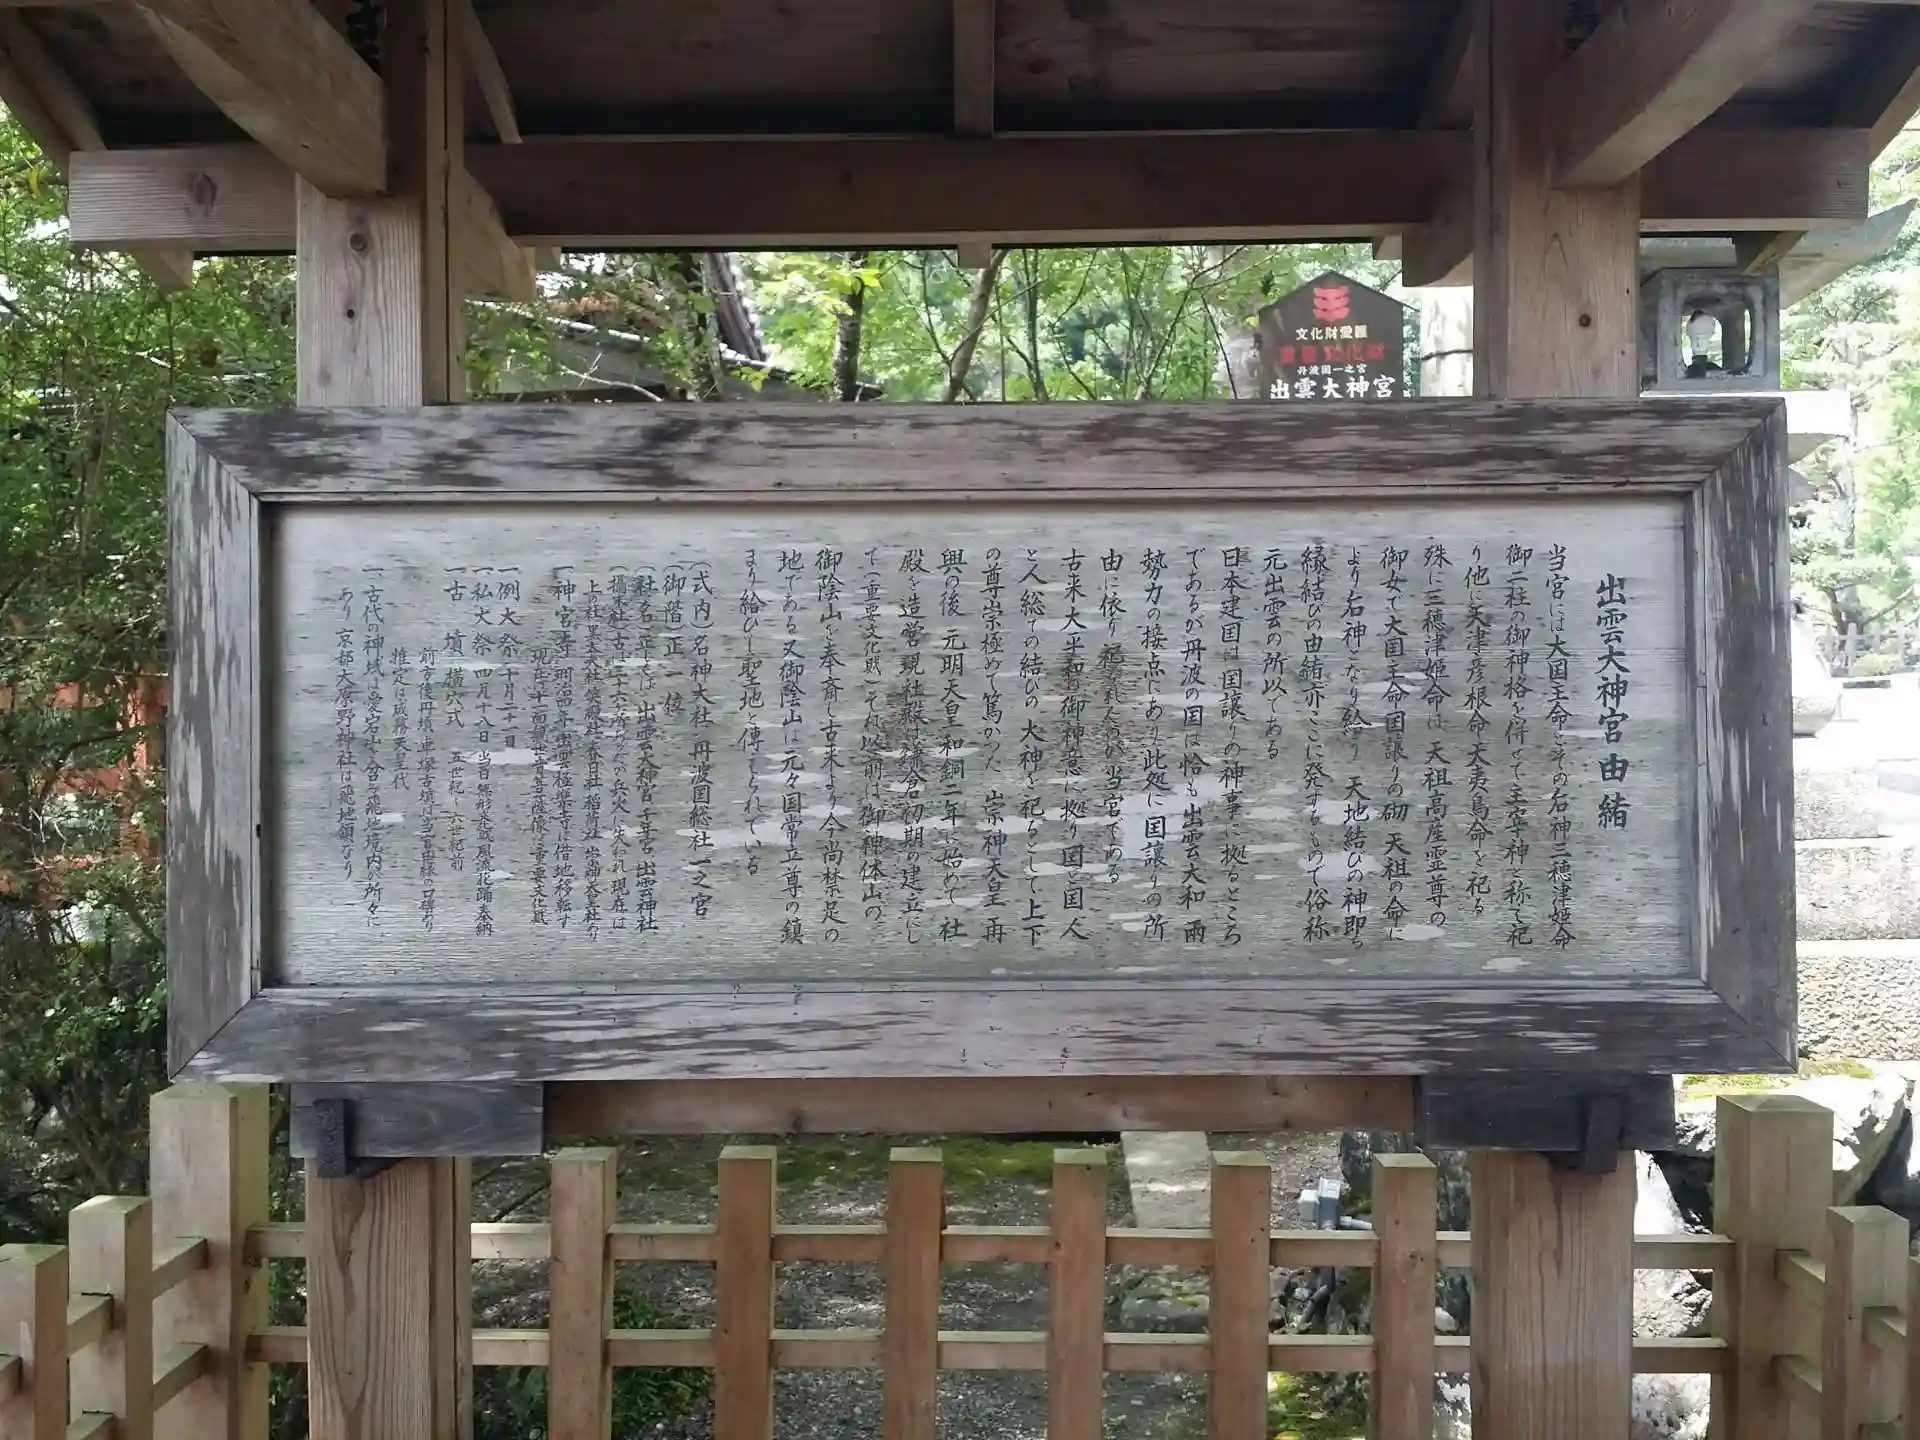 文化財愛護
重要文化財
丹波国一之宮
出雲大神宮
出雲大神宮由緒
当宮には大国主命とその后神三穂津姫命
御二柱の御神格を併せて主宰神と称え祀
り他に天津彦根命 天夷鳥命を祀る
殊に三穂津姫命は 天祖高産霊尊の
御女で大国主命国譲りの砌 天祖の命に
より后神となり給う 天地結びの神即ち
縁結びの由緒亦ここに発するもので俗称
元出雲の所以である
日本建国は国譲りの神事に拠るところ
であるが丹波の国は恰も出雲大和両
勢力の接点にあり此処に国譲りの所
由に依り祀られたのが当宮である
古来大平和の御神意に拠り国と国人
と人総ての結びの大神を祀るとして上下
の尊崇極めて篤かつた 崇神天皇再
興の後 元明天皇和銅二年に始めて社
殿を造営現社殿は鎌倉初期の建立にし
て(重要文化財)それ以前は御神体山の
御陰山を奉斎し古来より今尚禁足の
地である又御陰山は元々国常立尊の鎮
まり給ひし聖地と傳えられている
(式内)名神大社 丹波国総社 一之宮
(御階)正一位
(社名)正しくは 出雲大神宮 千年宮 出雲神社
(攝末社)古は三十六ヶ所なりしが兵火に失われ現在は
上の社 黒太夫社 笑殿社 春日社 稲荷社 崇神天皇社なり
一神宮寺
現在十一面観世音菩薩像は重要文化財
一例大祭 十月二十一日
一私大祭 四月十八日 当日無形文化財風流花踊奉納
一古墳 横穴式 五世紀〜六世紀前
前方後円墳 車塚古墳は当宮由縁の口碑あり
推定は成務天皇代
一古代の神域は愛宕山を含み飛地境内が所々に
あり 京都大原野神社は飛地領なり